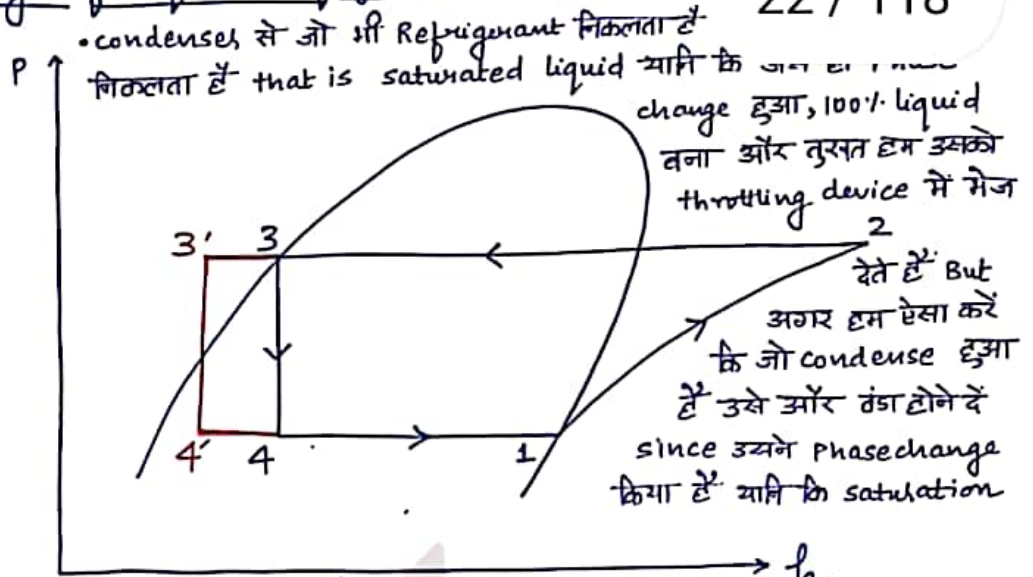 22 / 118
• condenses से जो भी Refrigerant निकलता है
निकलता है that is saturated liquid यानि कि
change हुआ, 100% liquid
बना और तुरन्त हम उसको
throttling device में भेज
देते हैं But
अगर हम ऐसा करें
कि जो condense हुआ
है उसे और ठंडा होने दें
since उसने Phasechange
किया है यानि कि saturation
P
3' 3 2
4' 4 1
h